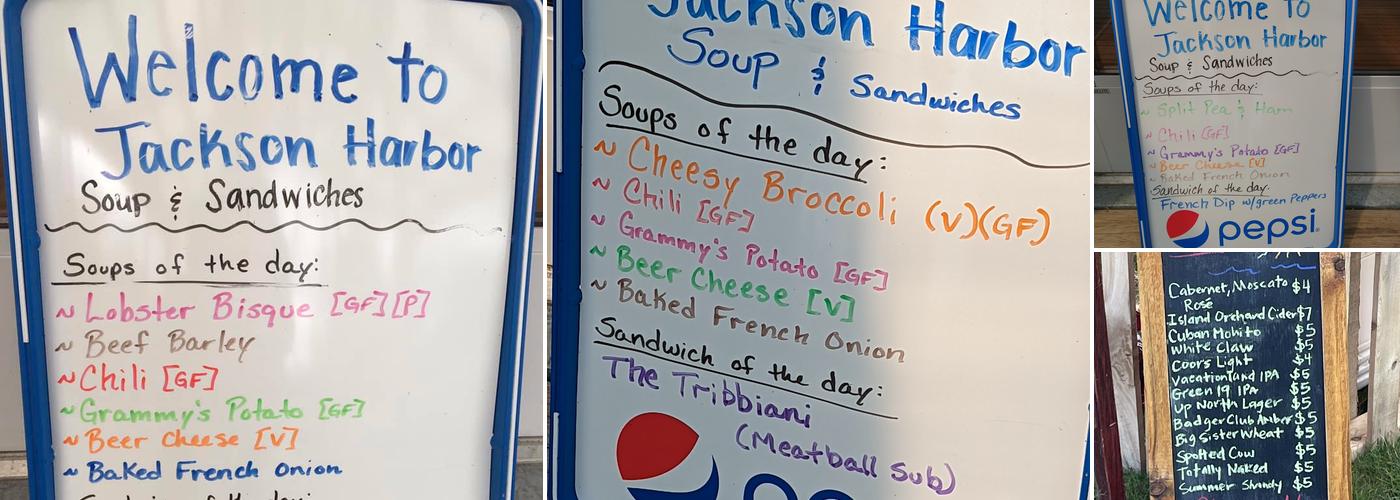 Welcome to
Jackson Harbor
Soup & Sandwiches
Soups of the day:
~ Lobster Bisque [GF] [P]
~ Beef Barley
~ Chili [GF]
~ Grammy's Potato [GF]
~ Beer Cheese [V]
~ Baked French Onion
Jackson Harbor
Soup & Sandwiches
Soups of the day:
~ Cheesy Broccoli (V)(GF)
~ Chili [GF]
~ Grammy's Potato [GF]
~ Beer Cheese [V]
~ Baked French Onion
Sandwich of the day:
The Tribbiani
(Meatball Sub)
Welcome to
Jackson Harbor
Soup & Sandwiches
Soups of the day:
~ Split Pea & Ham
~ Chili [GF]
~ Grammy's Potato [GF]
~ Beer Cheese [V]
~ Baked French Onion
Sandwich of the day:
French Dip w/green Peppers
pepsi
Cabernet, Moscato $4
Rosé
Island Orchard Cider $7
Cuban Mohito $5
White Claw $5
Coors Light $4
Vacationland IPA $5
Green 19 IPA $5
Up North Lager $5
Badger Club Amber $5
Big Sister Wheat $5
Spotted Cow $5
Totally Naked $5
Summer Shandy $5